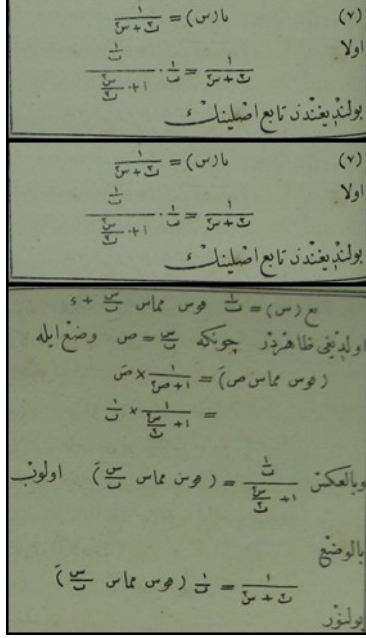 (٧) ما(س) = ١/(ب٢ + س٢)
اولا
١/(ب٢ + س٢) = ١/ب · (١/ب)/(١ + س٢/ب٢)
بولندیغندن تابع اصلینك
(٧) ما(س) = ١/(ب٢ + س٢)
اولا
١/(ب٢ + س٢) = ١/ب · (١/ب)/(١ + س٢/ب٢)
بولندیغندن تابع اصلینك
(س) = ١/ب قوس مماس س/ب + ء
اولدیغی ظاهردر چونكه س/ب = ص وضع ایله
(قوس مماس ص)َ = ١/(١ + ص٢) × صَ
= ١/(١ + س٢/ب٢) × ١/ب
وبالعكس (١/ب)/(١ + س٢/ب٢) = (قوس مماس س/ب)َ اولوب
بالوضع
١/(ب٢ + س٢) = ١/ب (قوس مماس س/ب)َ
بولنور